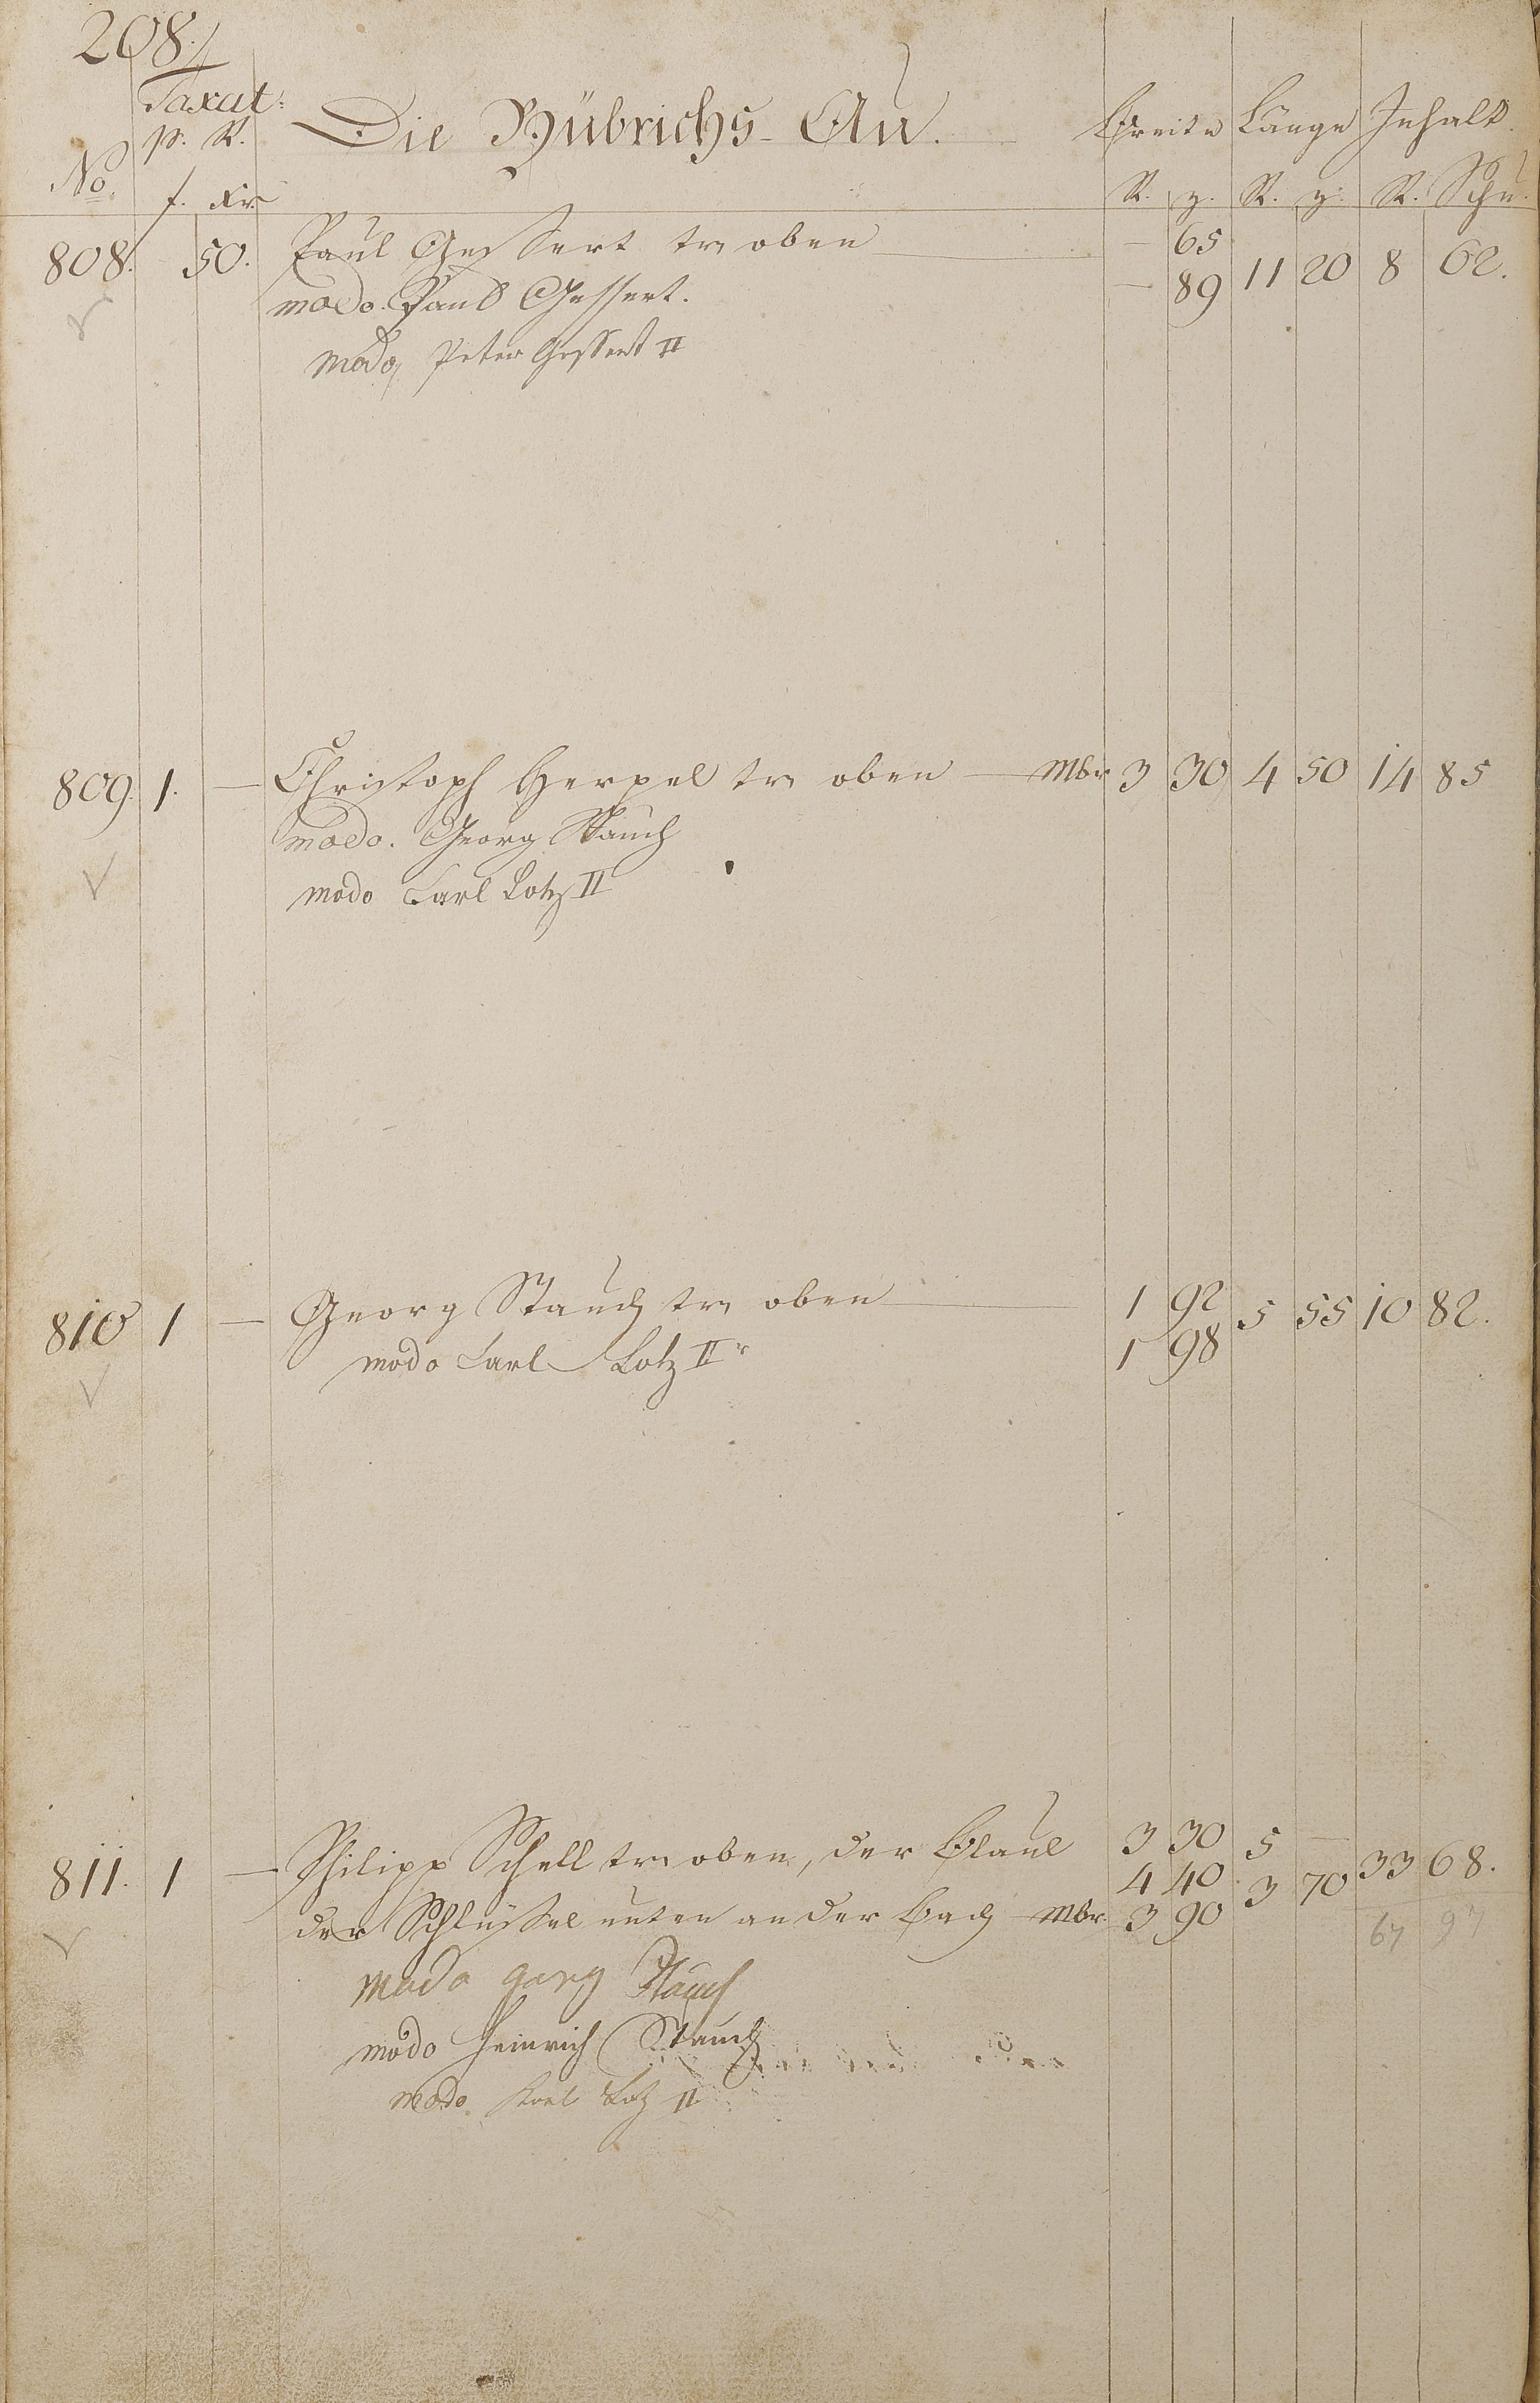 208.
Taxat: Die Hübrichs-Au. Breite Länge Inhalt
p. R.
No. f. Xr. R. z. R. z. R. Schu.
808. 50. Paul Gessert tr oben — 65
— 89 11 20 8 62.
modo. Paul Gessert.
modo Peter Gessert II
809. 1. — Christoph Herpel tr oben — Mbr 3 30 4 50 14 85
modo. Georg Stauch
modo Carl Lotz II
810 1 — Georg Stauch tr oben 1 92 5 55 10 82.
modo Carl Lotz IIr 1 98
811. 1 — Philipp Schell tr oben, der Blaul 3 30 5 —
4 40 3 70 33 68.
der Schlüssel unten an der Bach Mbr. 3 90
67 97
modo gorg Stauch
modo Heinrich Stauch
modo Karl Lotz II